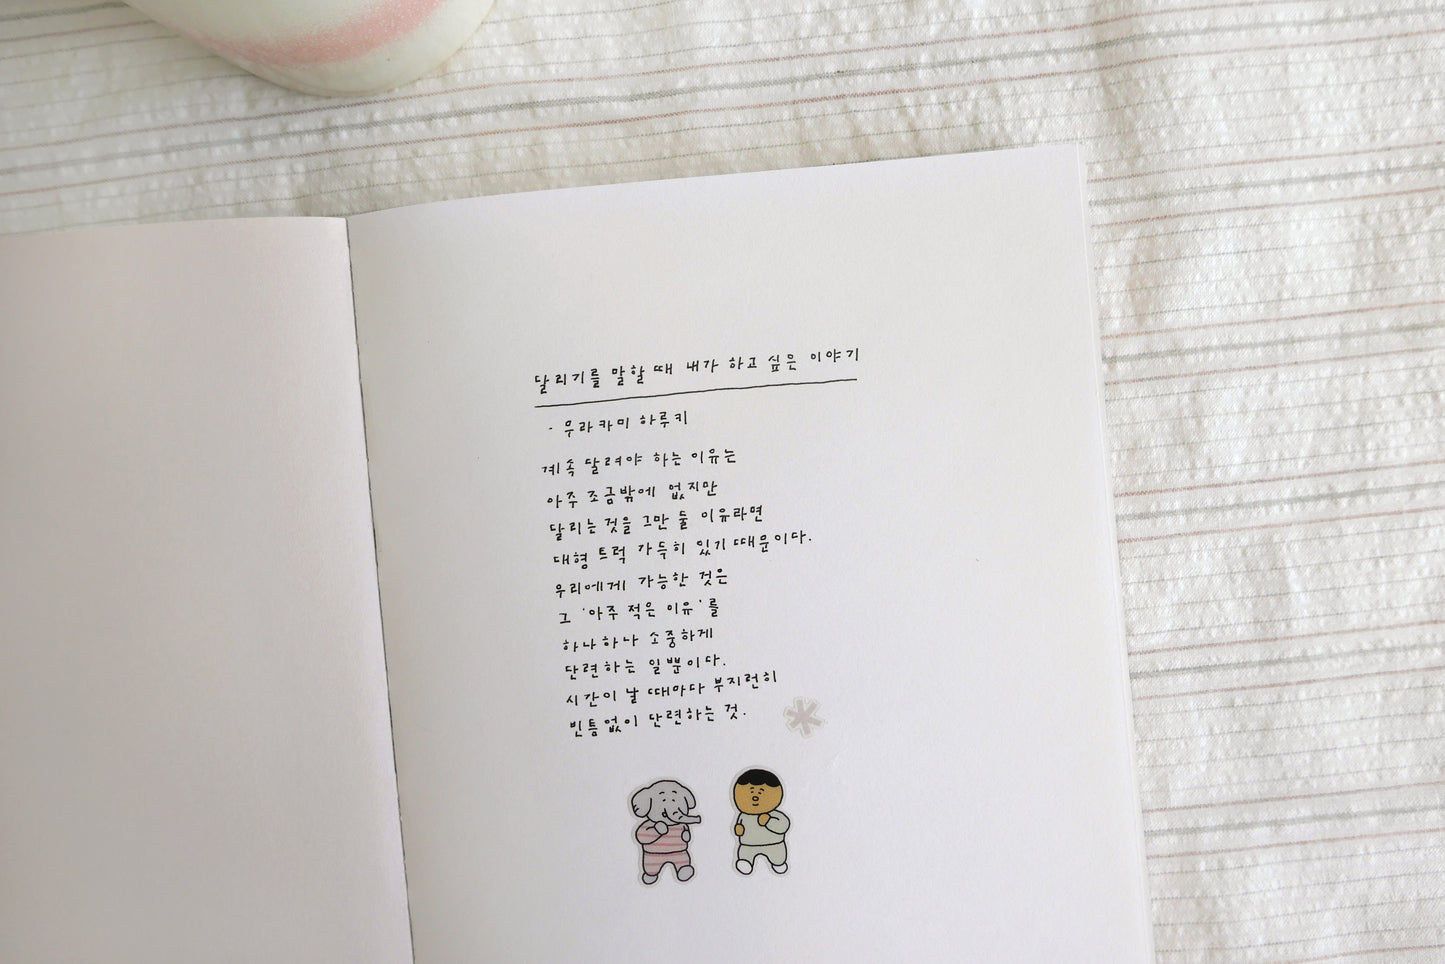 달리기를 말할 때 내가 하고 싶은 이야기
- 무라카미 하루키
계속 달려야 하는 이유는
아주 조금밖에 없지만
달리는 것을 그만 둘 이유라면
대형 트럭 가득히 있기 때문이다.
우리에게 가능한 것은
그 '아주 적은 이유'를
하나하나 소중하게
단련하는 일뿐이다.
시간이 날 때마다 부지런히
빈틈없이 단련하는 것.